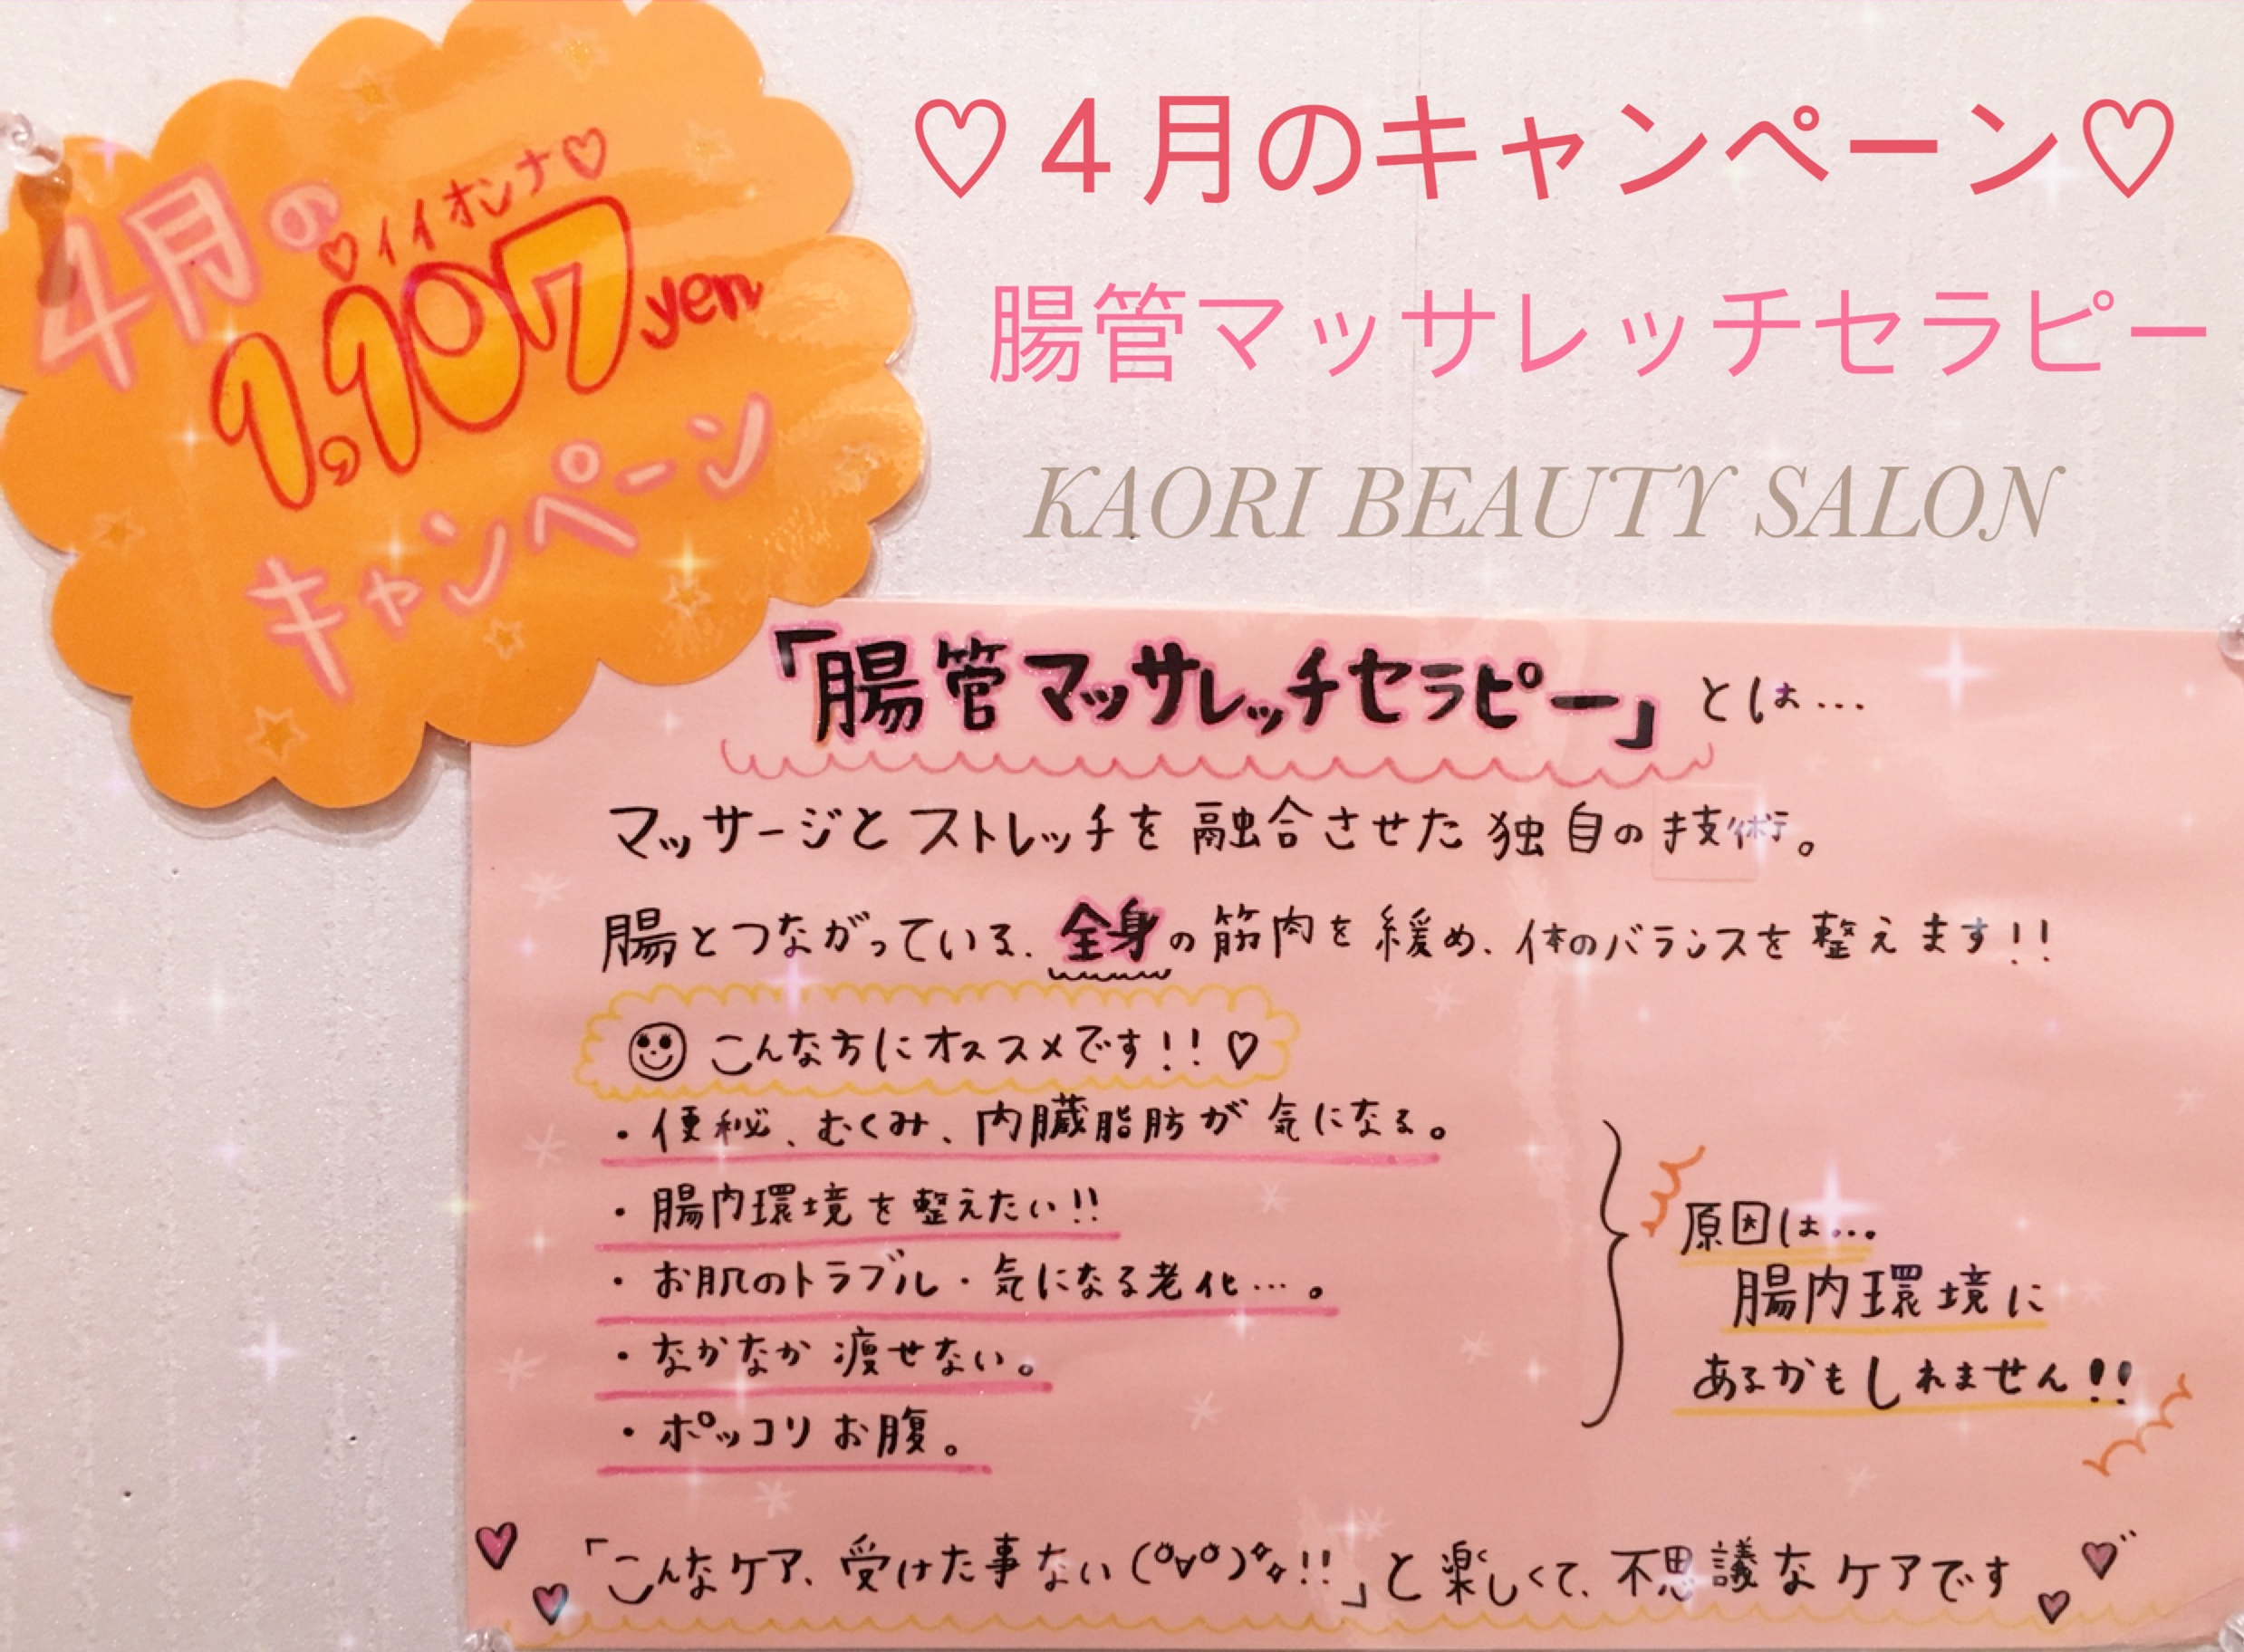 4月の
♡イイオンナ♡
1,107yen
キャンペーン
♡４月のキャンペーン♡
腸管マッサレッチセラピー
KAORI BEAUTY SALON
「腸管マッサレッチセラピー」とは…
マッサージとストレッチを融合させた独自の技術。
腸とつながっている、全身の筋肉を緩め、体のバランスを整えます!!
こんな方にオススメです!!♡
・便秘、むくみ、内臓脂肪が気になる。
・腸内環境を整えたい!!
・お肌のトラブル・気になる老化…。
・なかなか痩せない。
・ポッコリお腹。
原因は…
腸内環境に
あるかもしれません!!
「こんなケア、受けた事ない(°∀°)!!」と楽しくて、不思議なケアです